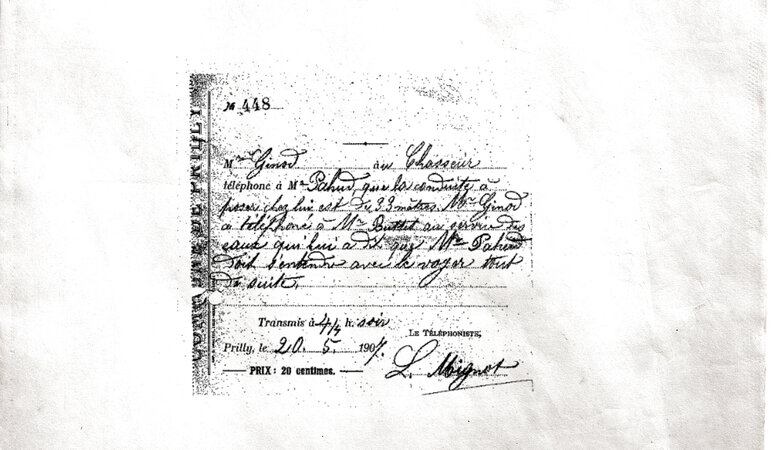 COMMUNE DE PRILLY
№ 448
Mr Ginod au Chasseur
téléphone à Mr Pahud, que la conduite à
poser chez lui est de 33 mètres. Mr Ginod
a téléphoné à Mr Buttet au service des
eaux qui lui a dit que Mr Pahud
doit s'entendre avec le voyer tout
de suite.
Transmis à 4 ¼ h. soir
LE TÉLÉPHONISTE,
Prilly, le 20. 5. 1907.
PRIX: 20 centimes.
L. Mignot